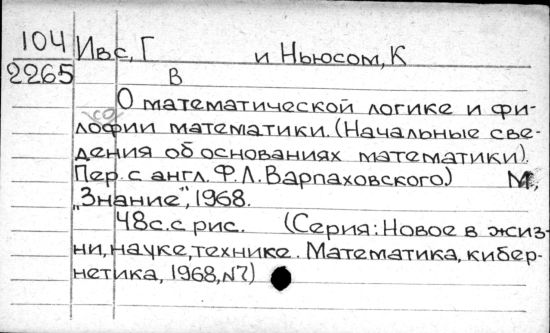 104 Ивс, Г и Ньюсом, К
2265 В
О математической логике и фи-
со
лофии математики. (Начальные све-
дения об основаниях математики).
Пер. с англ. Ф.Л.Варпаховского) М,
„Знание", 1968.
48с. с рис. (Серия: Новое в жиз-
ни, науке, технике. Математика, кибер-
нетика, 1968, N7)